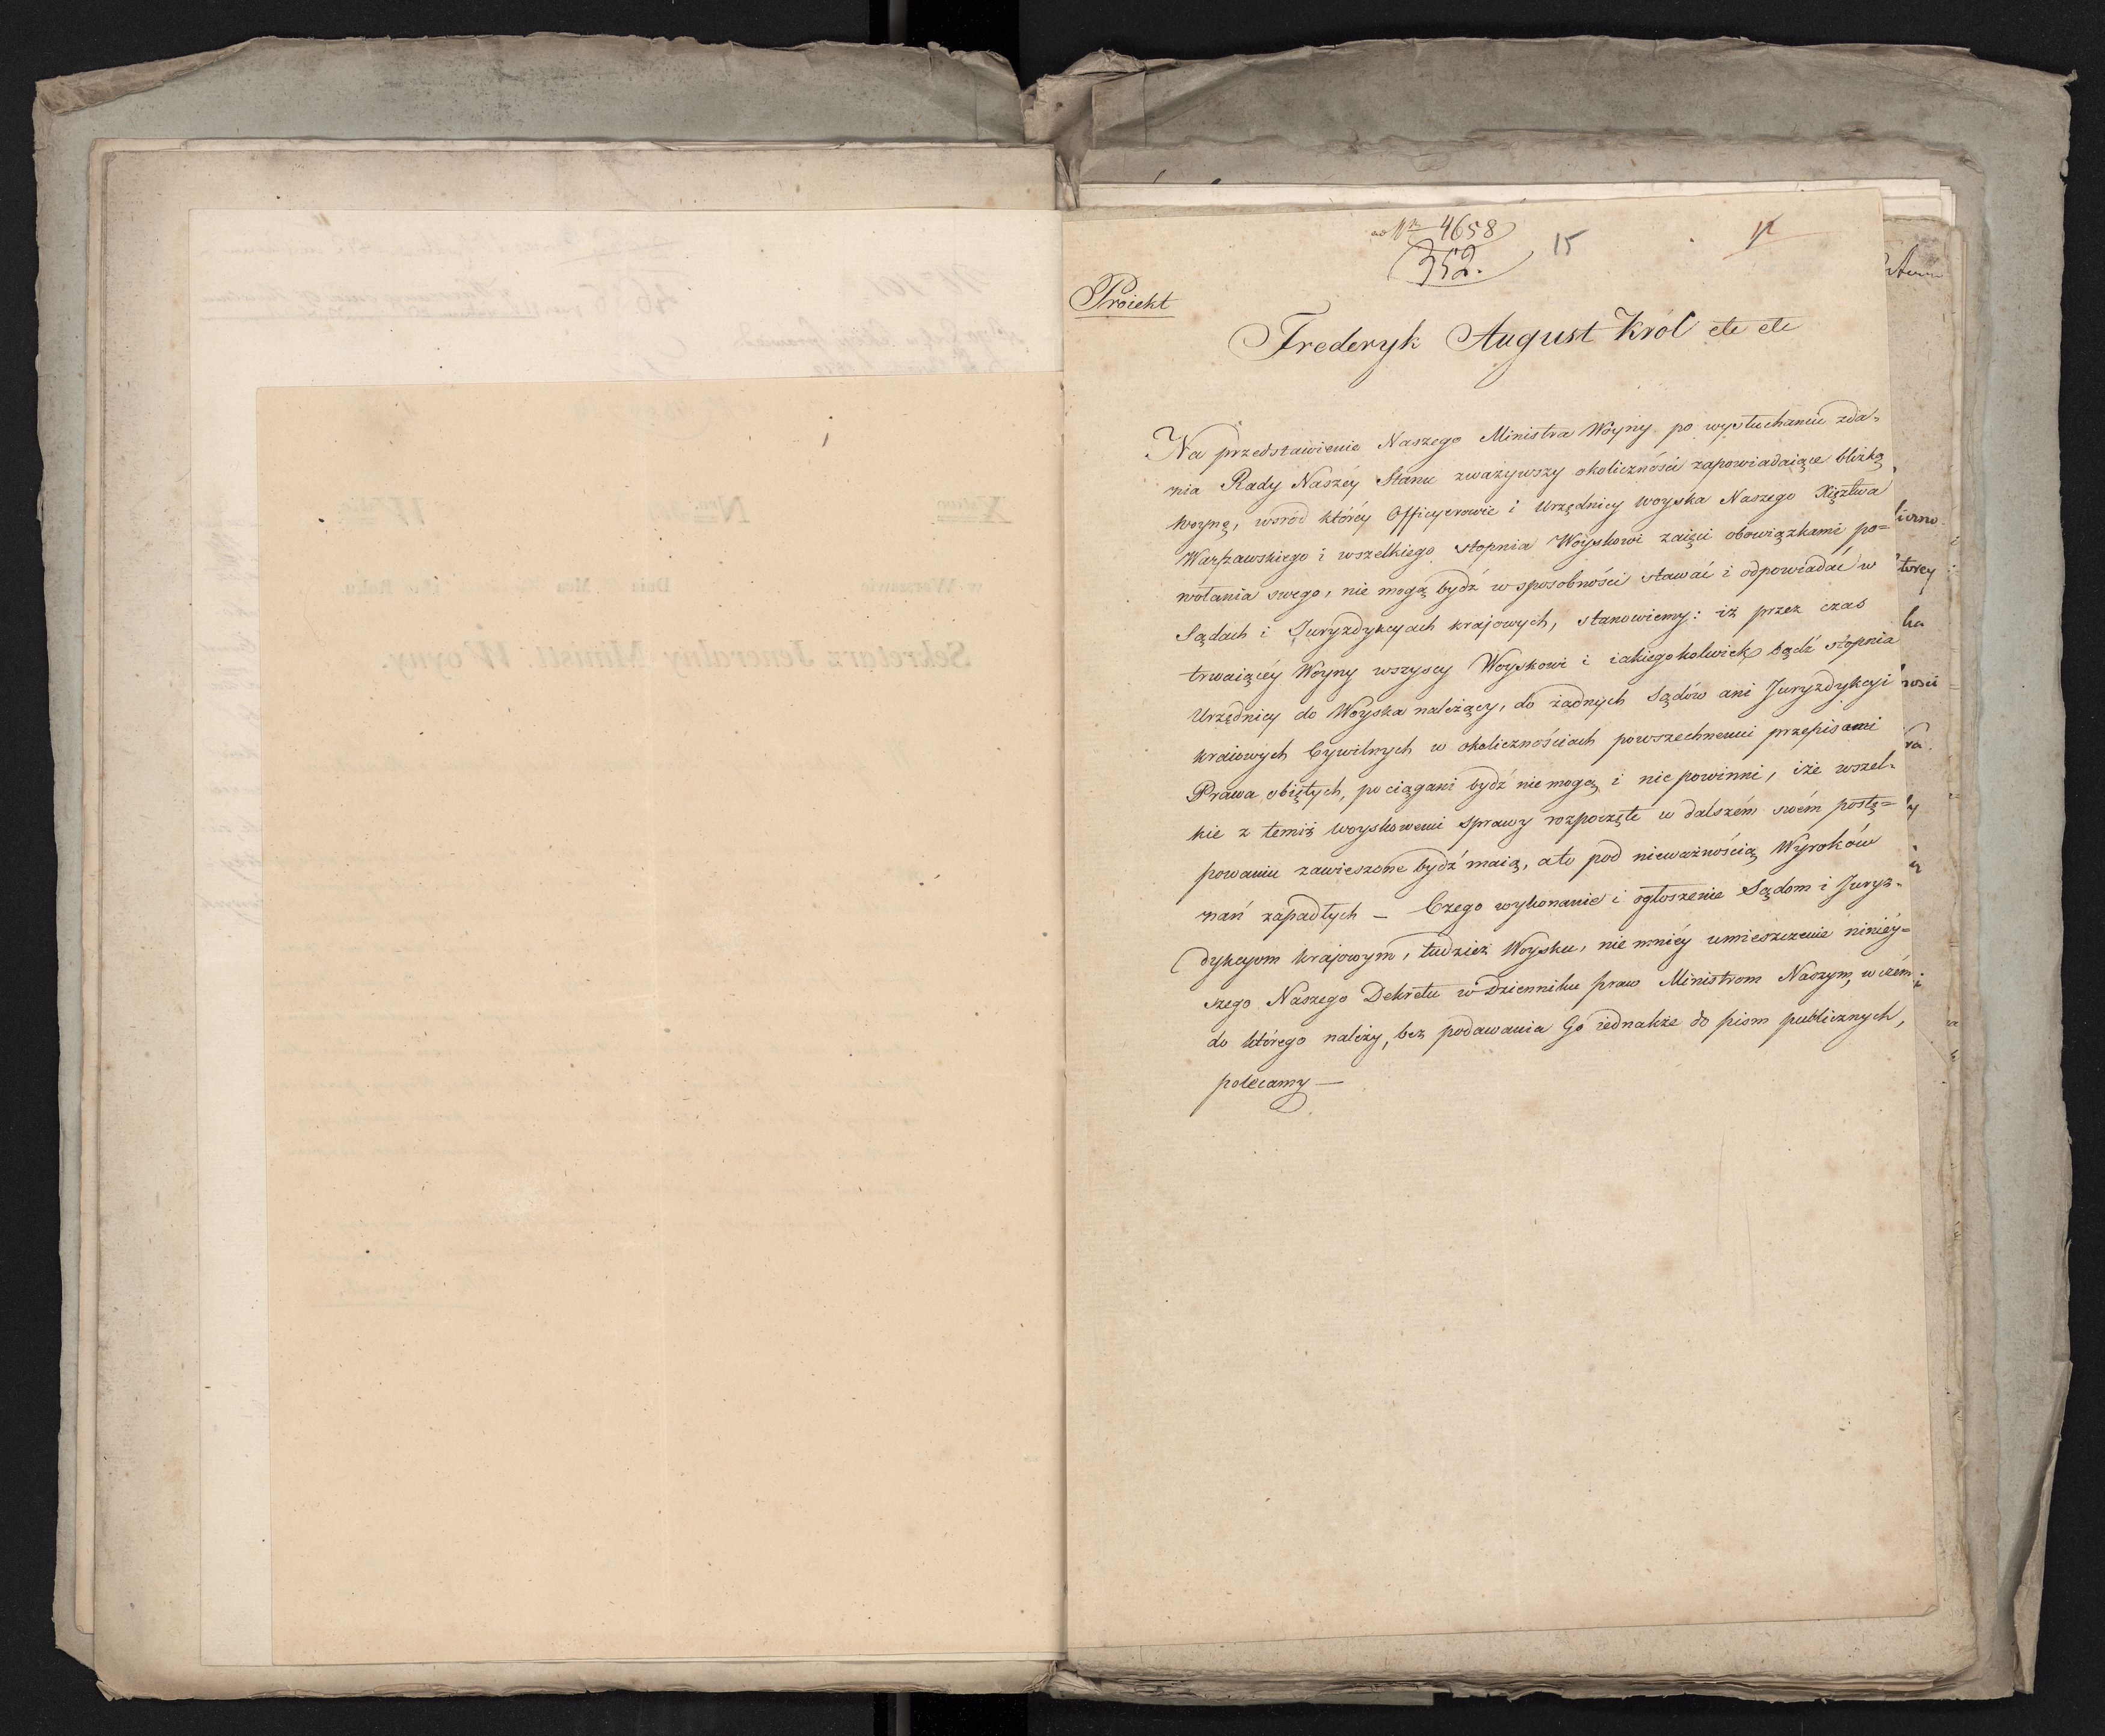 ad Nr 4658
352.
15
Proiekt
Frederyk August Król etc etc
Na przedstawienie Naszego Ministra Woyny po wysłuchaniu zda-
nia Rady Naszéy Stanu zważywszy okoliczności zapowiadaiące blizką
woynę, wsród któréy Officyerowie i Urzędnicy woyska Naszego Xięztwa
Warszawskiego i wszelkiego stopnia Woyskowi zaięci obowiązkami po=
wołania swego, nie mogą bydź w sposobności stawać i odpowiadać w
Sądach i Juryzdykcyach krajowych, stanowiemy: iż przez czas
trwaiącéy Woyny wszyscy Woyskowi i iakiegokolwiek bądź stopnia
Urzędnicy do Woyska należący, do żadnych Sądów ani Juryzdykcyi
kraiowych Cywilnych w okolicznościach powszechnemi przepisami
Prawa obiętych, pociągani bydź nie mogą i nie powinni, iże wszel-
kie z temiż woyskowemi sprawy rozpoczęte w dalszém swém postę=
powaniu zawieszone bydź maią, a to pod nieważnością Wyroków
nań zapadłych — Czego wykonanie i ogłoszenie Sądom i Juryz-
dykcyom krajowym, tudzież Woysku, nie mniéy umieszczenie niniéy=
szego Naszego Dekretu w Dzienniku praw Ministrom Naszym, w czém
do którego należy, bez podawania Go iednakże do pism publicznych,
polecamy —
Sekretarz Jeneralny Minist: Woyny.